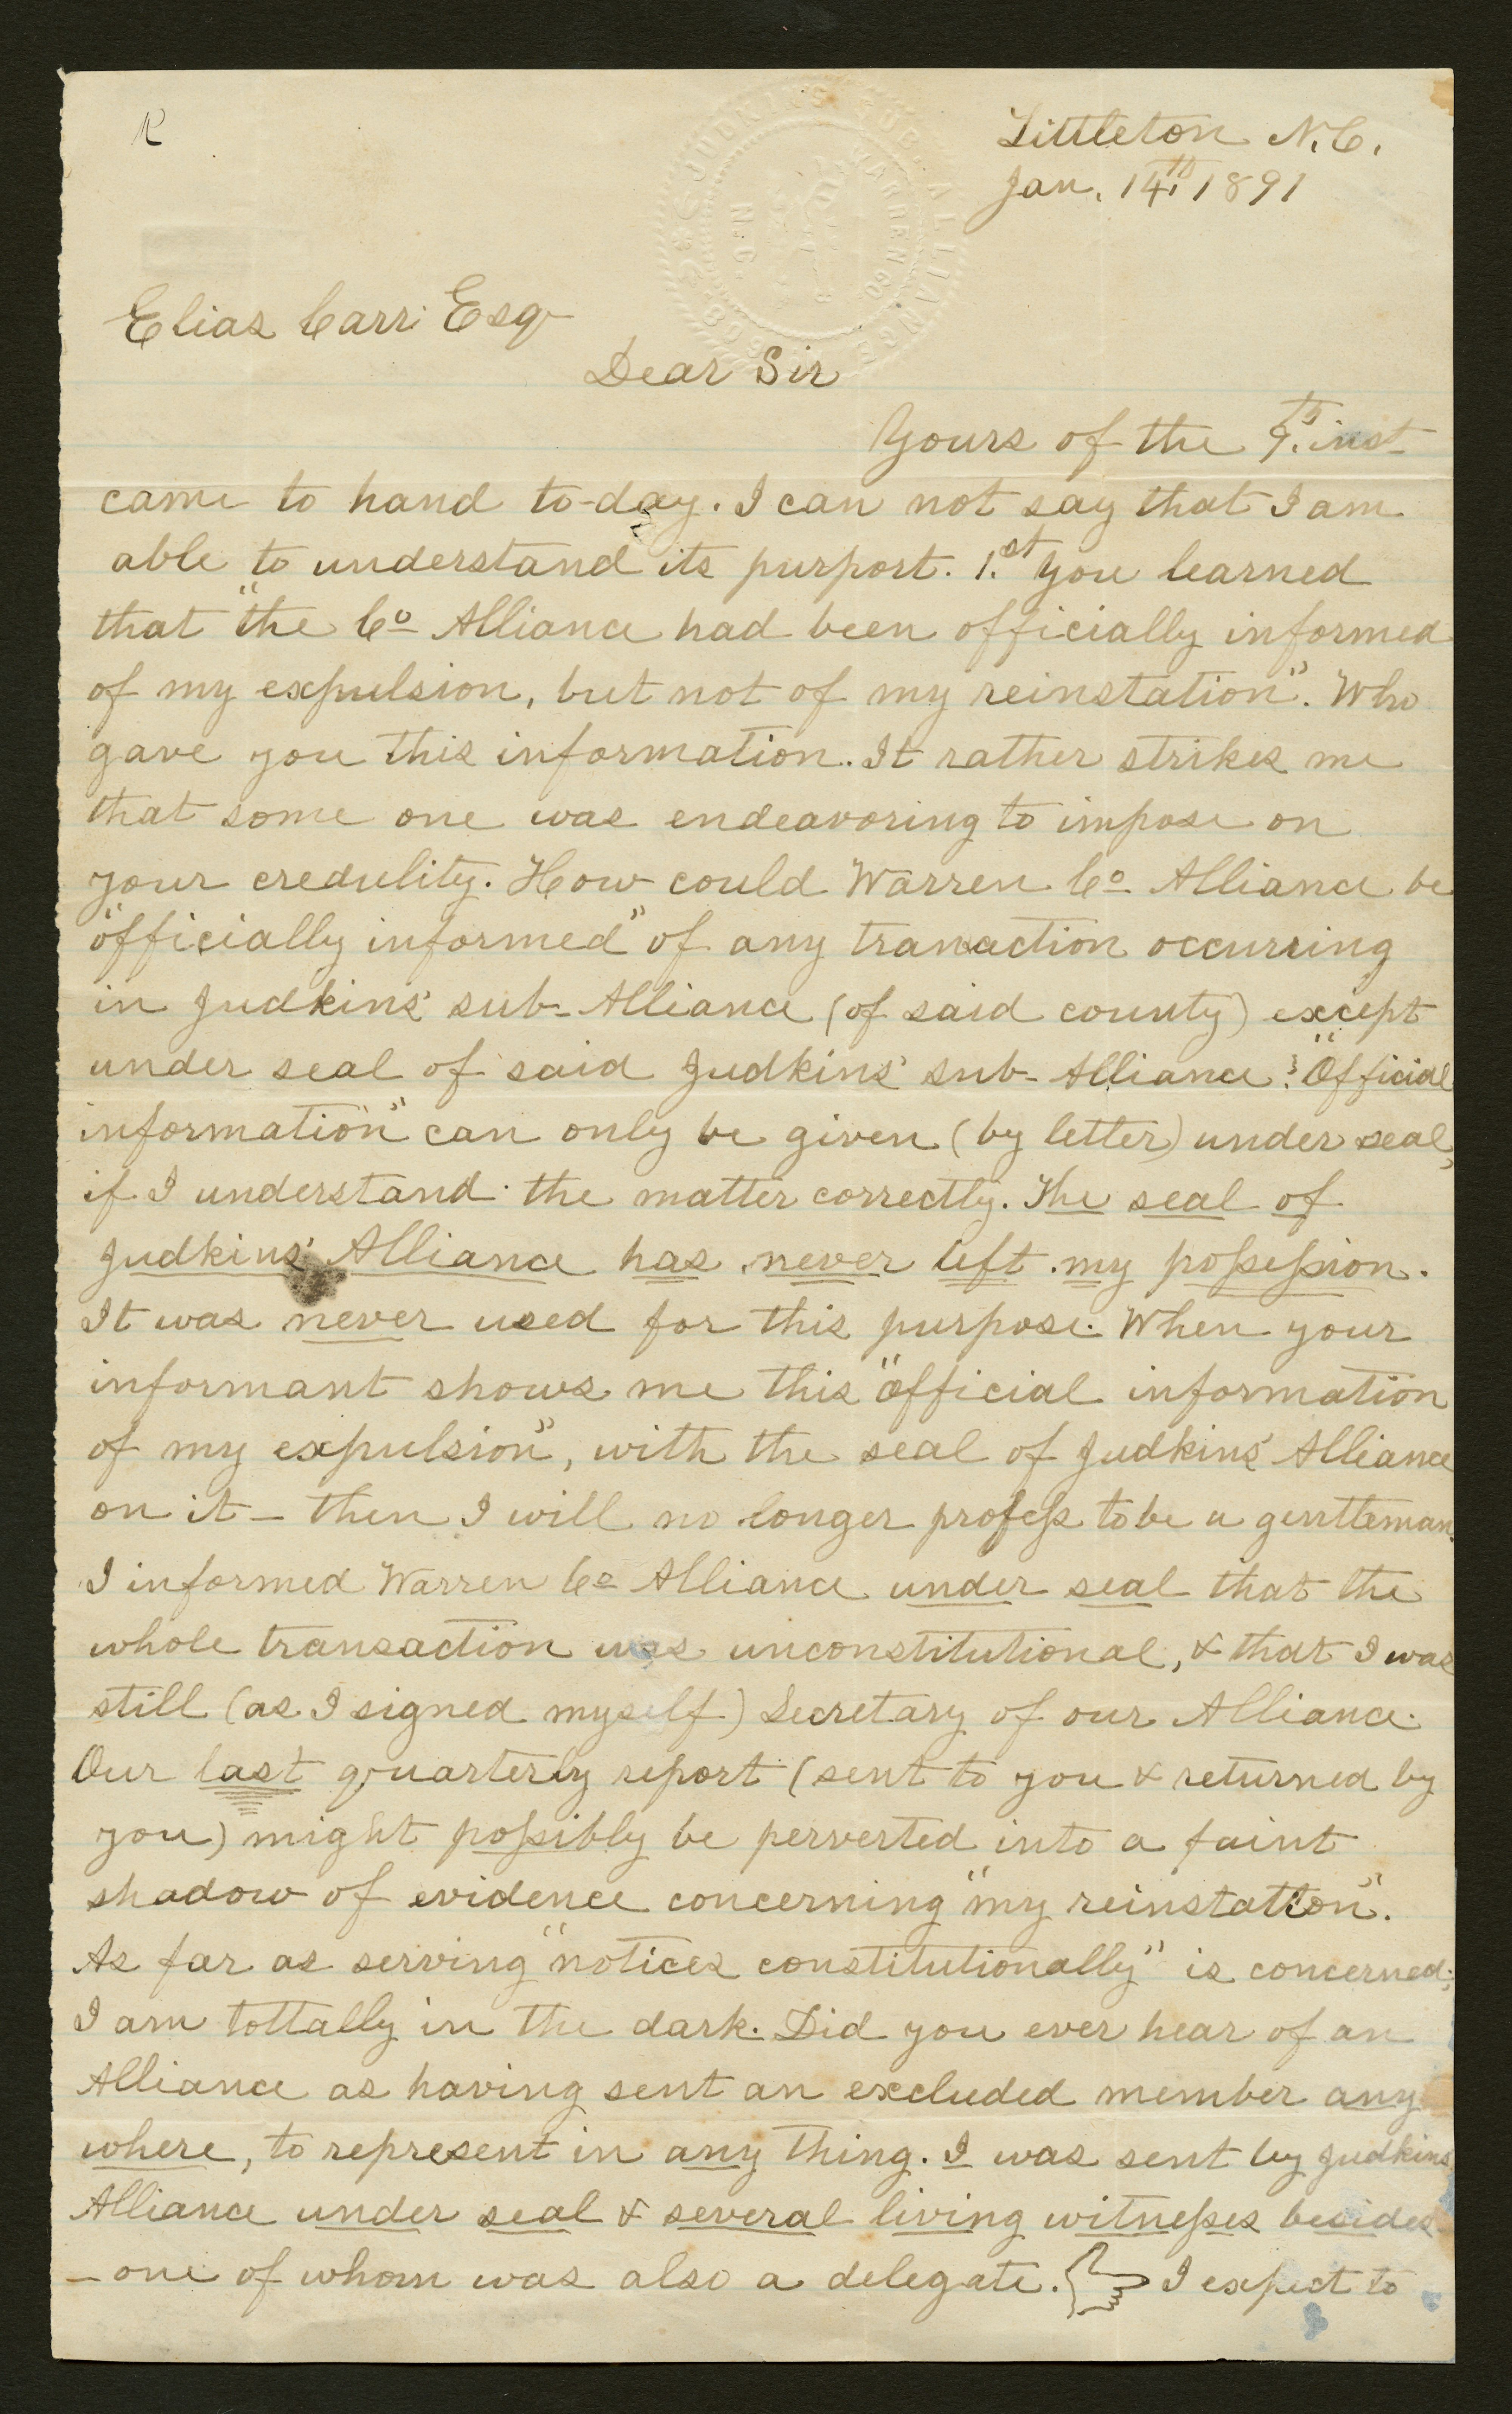 R
Littleton N.C.
Jan. 14th 1891
Elias Carr Esq
Dear Sir
Yours of the 9th inst
came to hand to-day. I can not say that I am
able to understand its purport. 1.st you learned
that "the Co Alliance had been officially informed
of my expulsion, but not of my reinstation". Who
gave you this information. It rather strikes me
that some one was endeavoring to impose on
your credulity. How could Warren Co Alliance be
"officially informed" of any tranaction occurring
in Judkins' sub-Alliance (of said county) except
under seal of said Judkins' sub-Alliance? "Official
information" can only be given (by letter) under seal,
if I understand the matter correctly. The seal of
Judkins' Alliance has never left my possession.
It was never used for this purpose. When your
informant shows me this "official information
of my expulsion", with the seal of Judkins' Alliance
on it - then I will no longer profess to be a gentleman.
I informed Warren Co Alliance under seal that the
whole transaction was unconstitutional, & that I was
still (as I signed myself) Secretary of our Alliance.
Our last quarterly report (sent to you & returned by
you) might possibly be perverted into a faint
shadow of evidence concerning "my reinstation".
As far as serving "notices constitutionally" is concerned;
I am tottally in the dark. Did you ever hear of an
Alliance as having sent an excluded member any
where, to represent in any thing. I was sent by Judkins
Alliance under seal & several living witnesses besides
- one of whom was also a delegate. I expect to